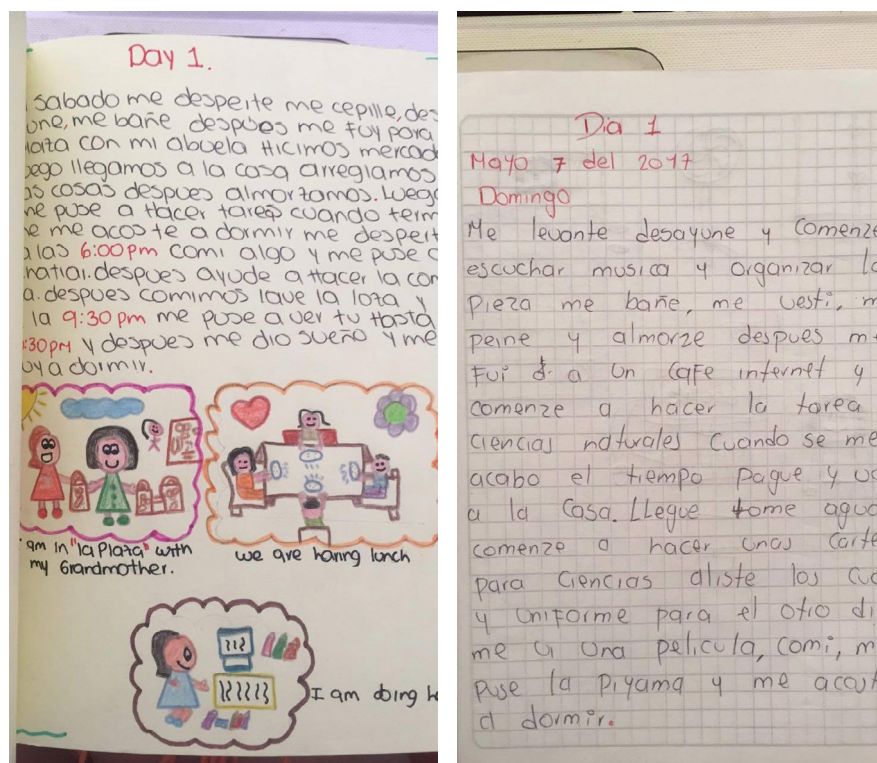 Day 1.
sabado me despeite me cepille, des
une, me bañe despues me fuy para
laza con mi abuela Hicimos mercad
uego llegamos a la casa arreglamos
as cosas despues almorzamos. Luego
me puse a Hacer tareas cuando term
e me acoste a dormir me despert
a las 6:00pm comi algo y me puse
despues ayude a Hacer la com
a. despues comimos lave la loza y
la 9:30 pm me puse a ver tv Hasta
:30PM y despues me dio sueño y me
uy a dormir.
am in "la Plaza" with
my Grandmother.
we are having lunch
I am doing h
Dia 1
Mayo 7 del 2017
Domingo
Me levante desayune y comenze
escuchar musica y organizar la
pieza me bañe, me vesti, m
peine y almorze despues m
Fui a un cafe internet y
comenze a hacer la tarea
ciencias naturales cuando se me
acabo el tiempo pague y
a la casa. LLegue tome agua
comenze a hacer unas carte
para ciencias aliste los cua
y uniforme para el otro di
me vi una pelicula, comi, m
puse la piyama y me
a dormir.